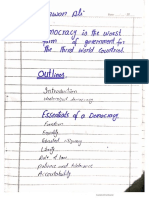 Democracy is the worst
form of government for
the third world countries.
Outlines
Introduction
Understand democracy
Essentials of a Democracy
Freedom
Equality
Liberty
Rule of law
Patience and tolerance
Accountability